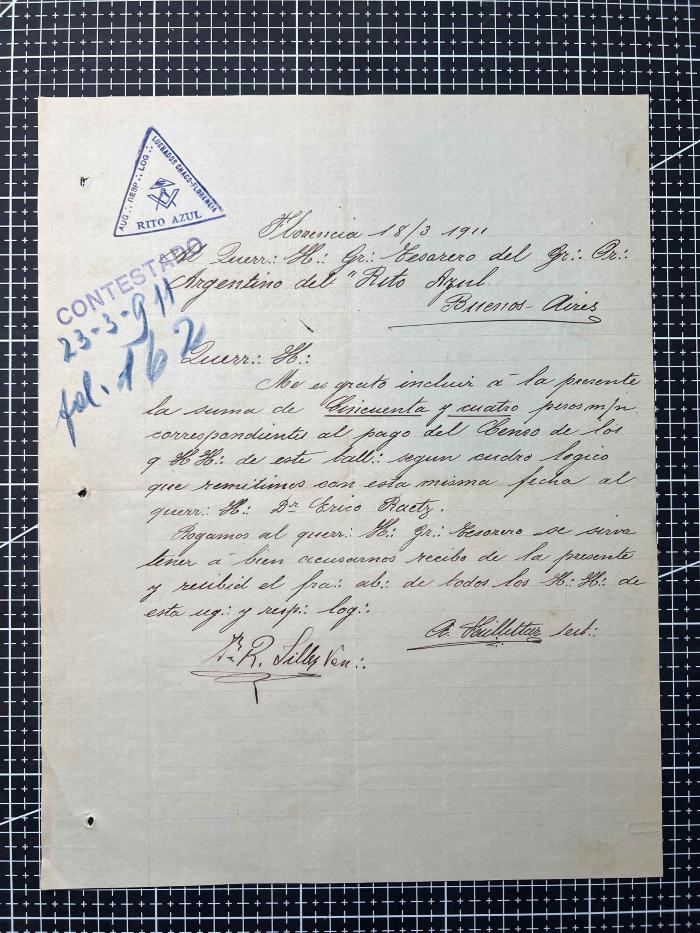 AUG∴ RESP∴ LOG∴ LUCHADOS CHACO-FLORENCIA
RITO AZUL
CONTESTADO
23-3-911
fol. 162
Florencia 18/3 1911
Al Querr∴ H∴ Gr∴ Tesorero del Gr∴ Or∴
Argentino del "Rito Azul
Buenos-Aires
Querr∴ H∴
Me es grato incluir á la presente
la suma de Cincuenta y cuatro pesos m/n
correspondientes al pago del Censo de los
9 HH∴ de este tall∴ segun cudro logico
que remitimos con esta misma fecha al
querr∴ H∴ Dr Erico Raetz.
Rogamos al querr∴ H∴ Gr∴ Tesorero se sirva
tener á bien acusarnos recibo de la presente
y recibid el fra∴ ab∴ de todos los H∴ H∴ de
esta ug∴ y resp∴ log∴
A. Sect∴
R. Ven∴